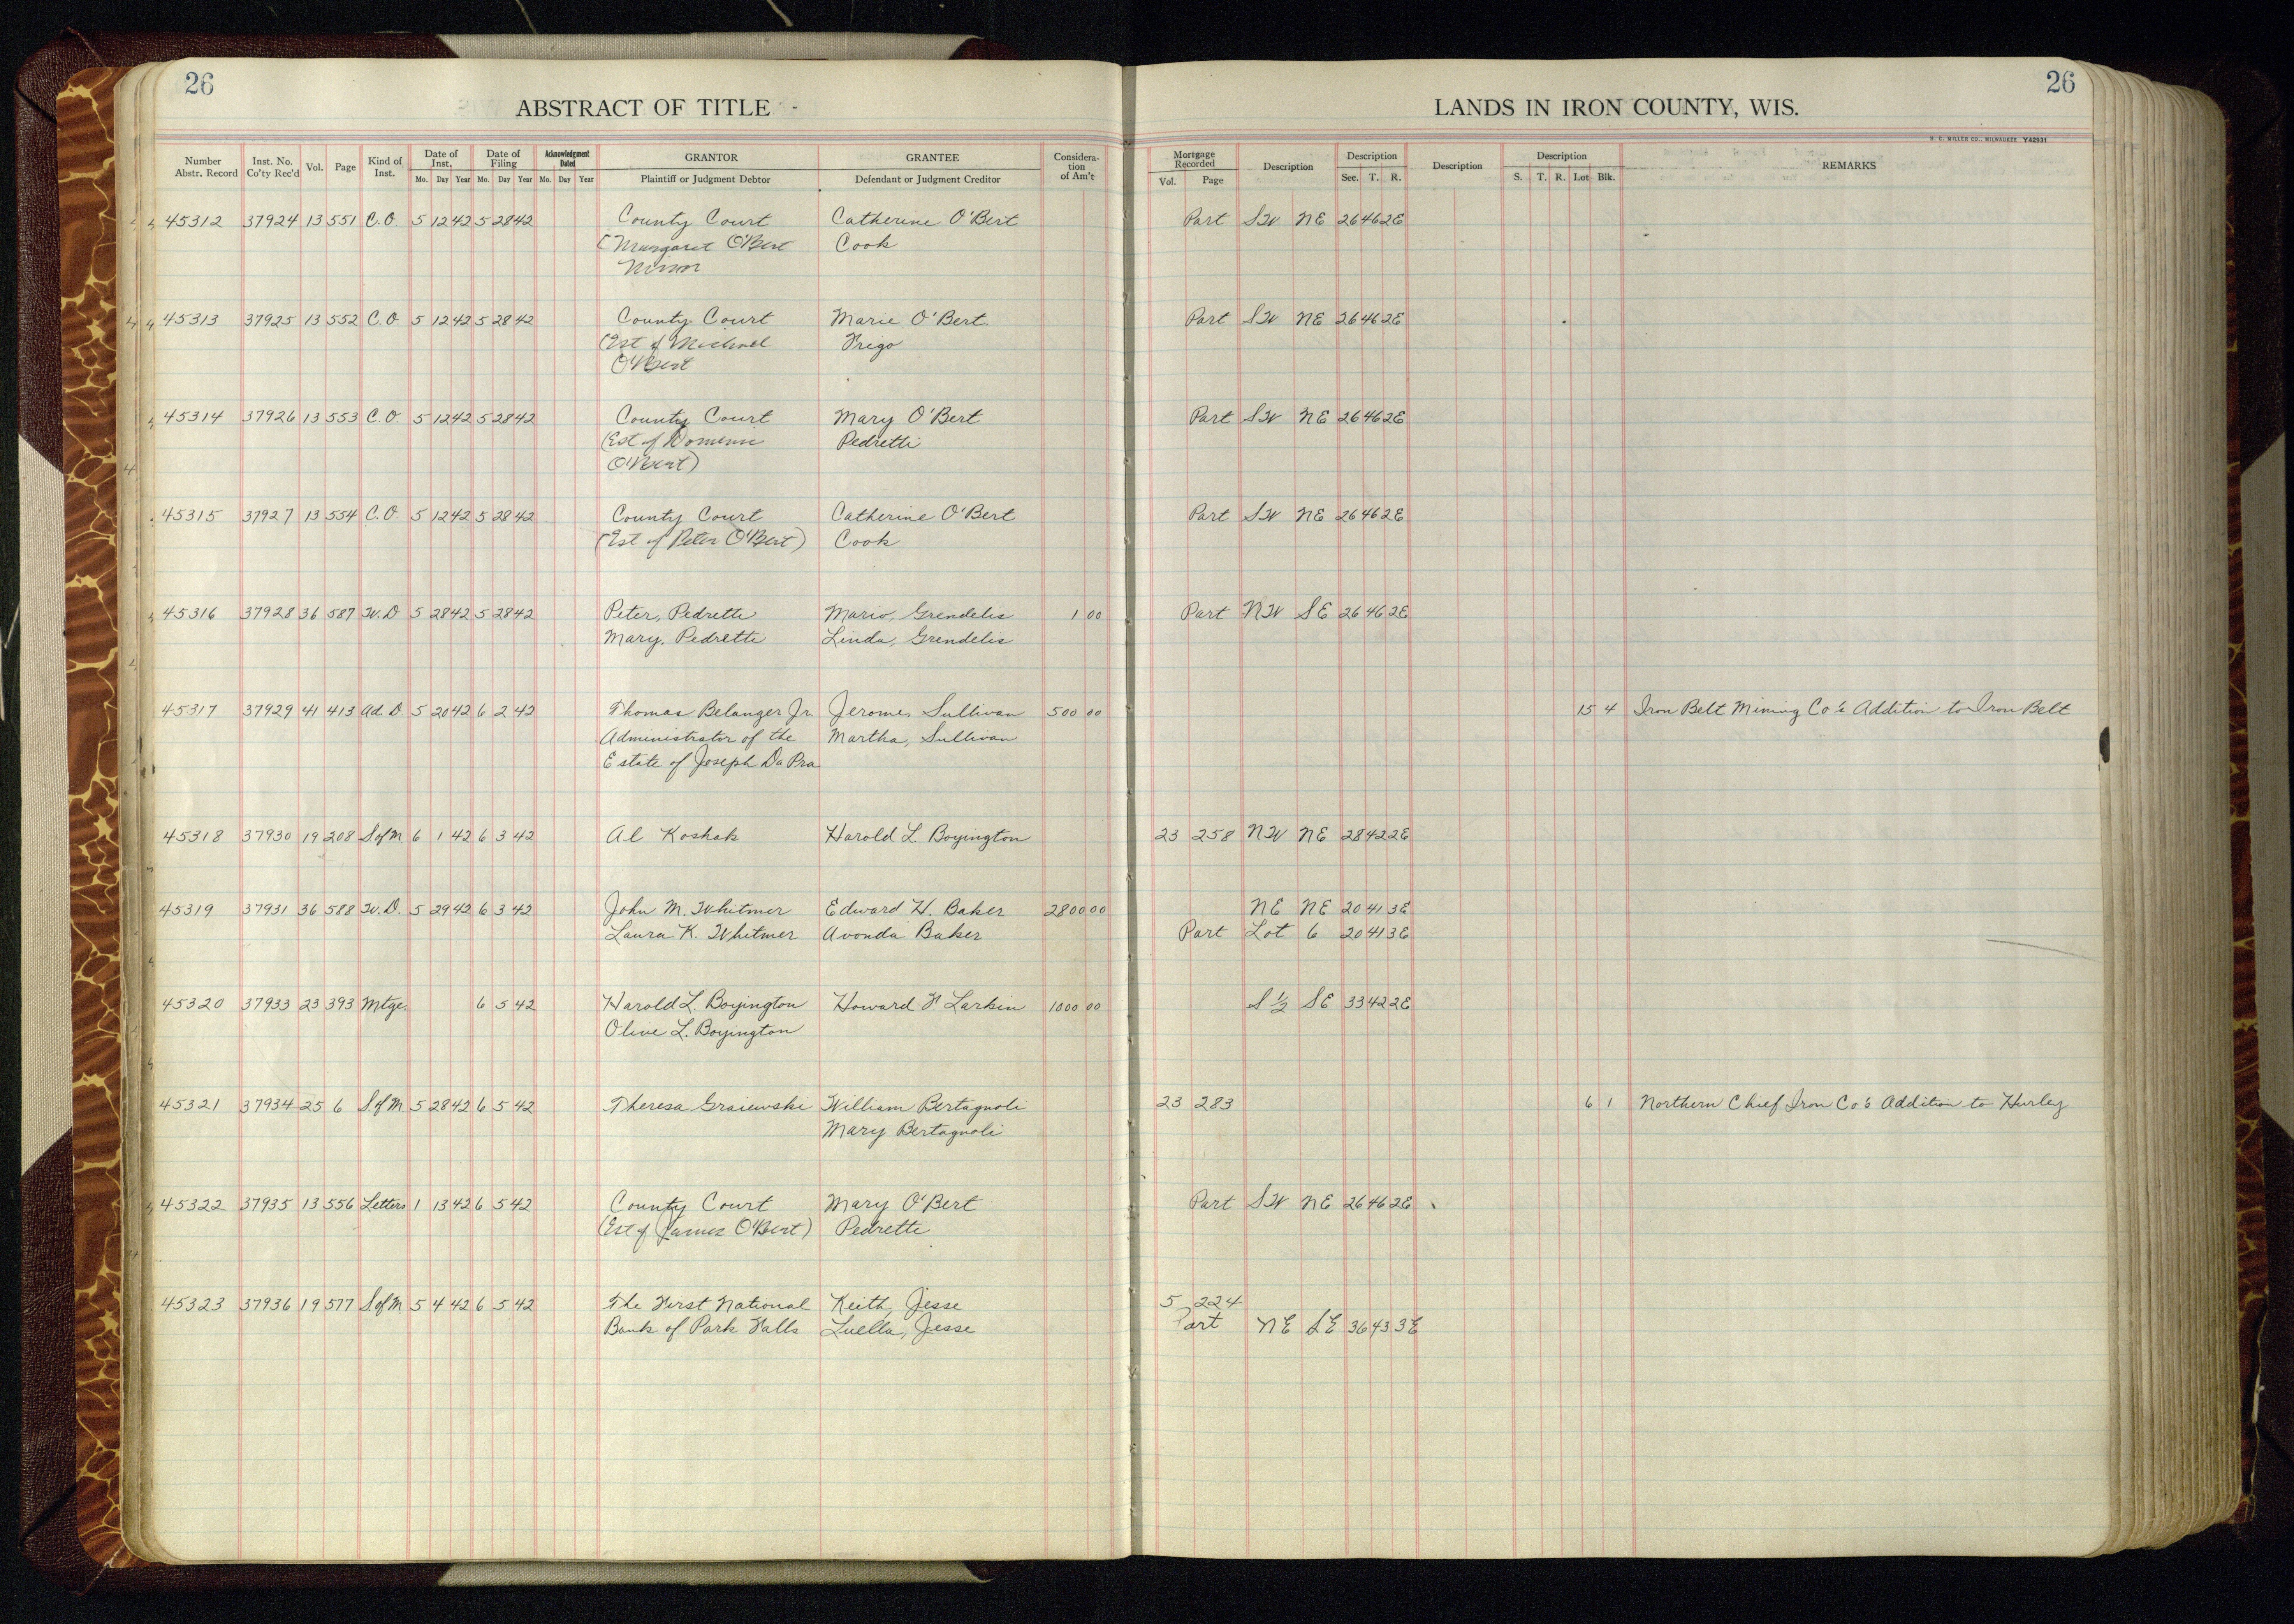 26
26
ABSTRACT OF TITLE -
LANDS IN IRON COUNTY, WIS.
H. C. MILLER CO., MILWAUKEE Y42931
Number Abstr. Record Inst. No. Co'ty Rec'd Vol. Page Kind of Inst. Date of Inst. Mo. Day Year Date of Filing Mo. Day Year Acknowledgment Dated Mo. Day Year GRANTOR Plaintiff or Judgment Debtor GRANTEE Defendant or Judgment Creditor Considera-tion of Am't Mortgage Recorded Vol. Page Description Description Sec. T. R. Description Description S. T. R. Lot Blk. REMARKS
45312 37924 13 551 C.O. 5 12 42 5 28 42 County Court Catherine O'Bert Part SW NE 26 46 2E
(Margaret O'Bert Cook
Minor
45313 37925 13 552 C.O. 5 12 42 5 28 42 County Court Marie O'Bert Part SW NE 26 46 2E
(Est of Michael Frigo
O'Bert
45314 37926 13 553 C.O. 5 12 42 5 28 42 County Court Mary O'Bert Part SW NE 26 46 2E
(Est of Dominic Pedretti
O'Bert)
45315 37927 13 554 C.O. 5 12 42 5 28 42 County Court Catherine O'Bert Part SW NE 26 46 2E
(Est of Peter O'Bert) Cook
45316 37928 36 587 W.D 5 28 42 5 28 42 Peter, Pedretti Mario, Grendelis 1 00 Part NW SE 26 46 2E
Mary, Pedretti Linda, Grendelis
45317 37929 41 413 Ad. D. 5 20 42 6 2 42 Thomas Belanger Jr. Jerome, Sullivan 500 00 15 4 Iron Belt Mining Co's Addition to Iron Belt
Administrator of the Martha, Sullivan
Estate of Joseph Da Pra
45318 37930 19 208 S of M 6 1 42 6 3 42 Al Koshak Harold L. Boyington 23 258 NW NE 28 42 2E
45319 37931 36 588 W.D. 5 29 42 6 3 42 John M. Whitmer Edward H. Baker 2800 00 NE NE 20 41 3E
Laura K. Whitmer Avonda Baker Part Lot 6 20 41 3E
45320 37933 23 393 Mtge. 6 5 42 Harold L. Boyington Howard F. Larkin 1000 00 S 1/2 SE 33 42 2E
Olive L. Boyington
45321 37934 25 6 S of M 5 28 42 6 5 42 Theresa Graiewski William Bertagnoli 23 283 6 1 Northern Chief Iron Co's Addition to Hurley
Mary Bertagnoli
45322 37935 13 556 Letters 1 13 42 6 5 42 County Court Mary O'Bert Part SW NE 26 46 2E
(Est of James O'Bert) Pedretti
45323 37936 19 577 S. of M. 5 4 42 6 5 42 The First National Keith, Jesse 5 224
Bank of Park Falls Luella, Jesse Part NE SE 36 43 3E